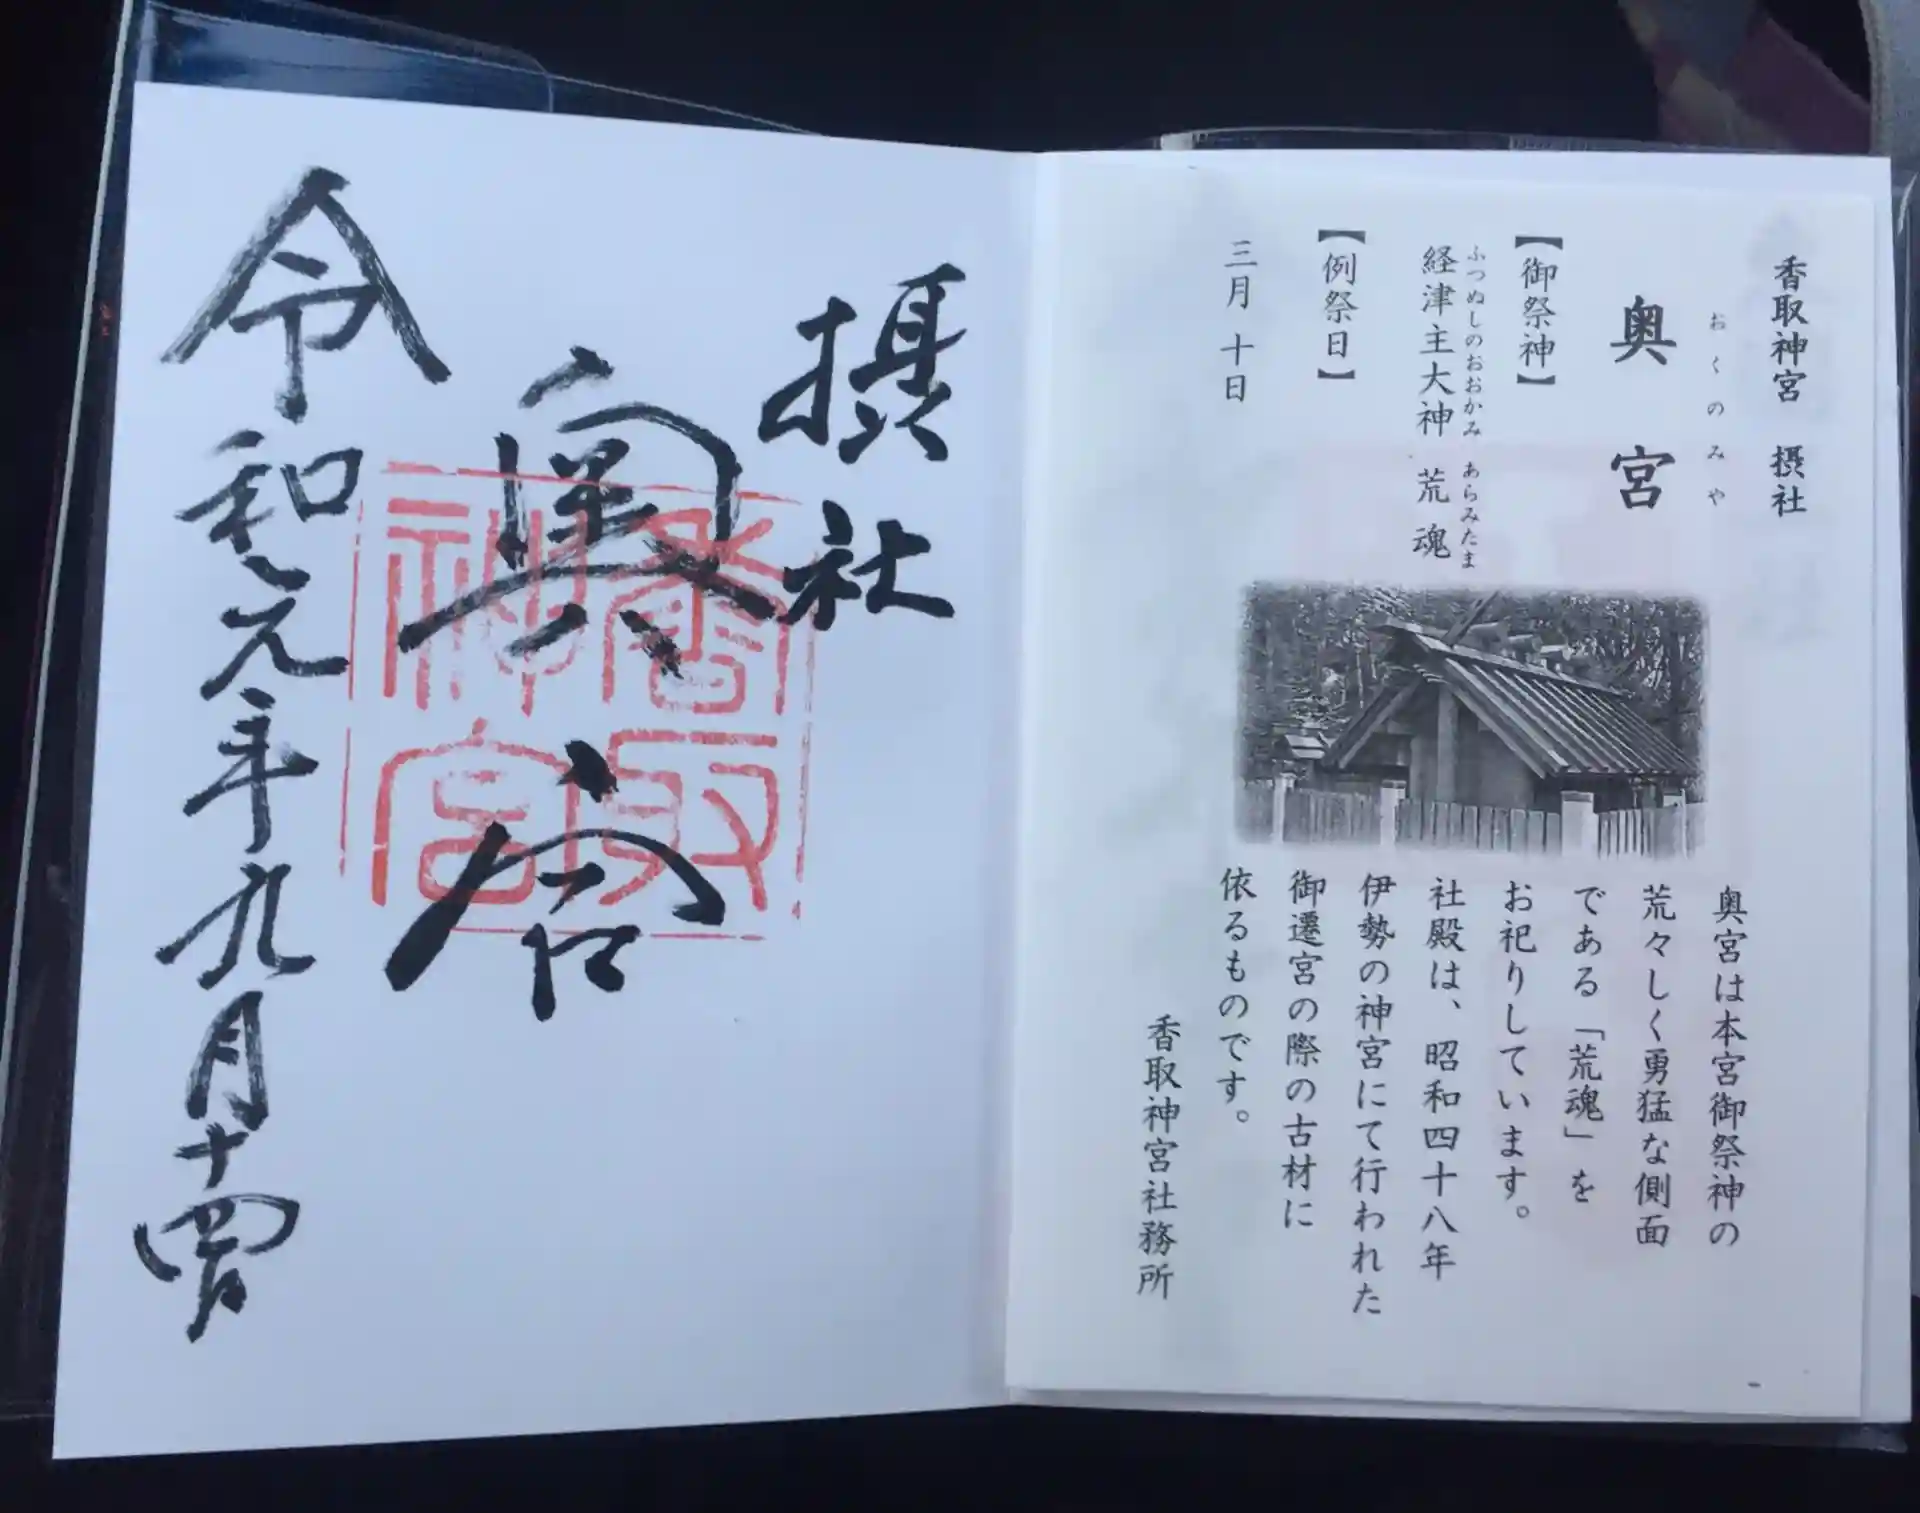 香取神宮　摂社
おくのみや
奥宮
【御祭神】
ふつぬしのおおかみ　あらみたま
経津主大神　荒魂
【例祭日】
三月十日
奥宮は本宮御祭神の
荒々しく勇猛な側面
である「荒魂」を
お祀りしています。
社殿は、昭和四十八年
伊勢の神宮にて行われた
御遷宮の際の古材に
依るものです。
香取神宮社務所
摂社
奥宮
香取神宮
令和元年九月十四日